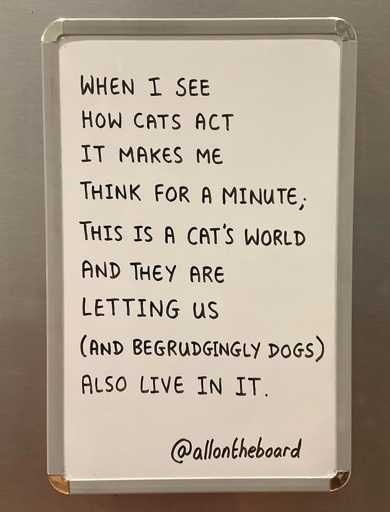 WHEN I SEE
HOW CATS ACT
IT MAKES ME
THINK FOR A MINUTE;
THIS IS A CAT'S WORLD
AND THEY ARE
LETTING US
(AND BEGRUDGINGLY DOGS)
ALSO LIVE IN IT.
@allontheboard